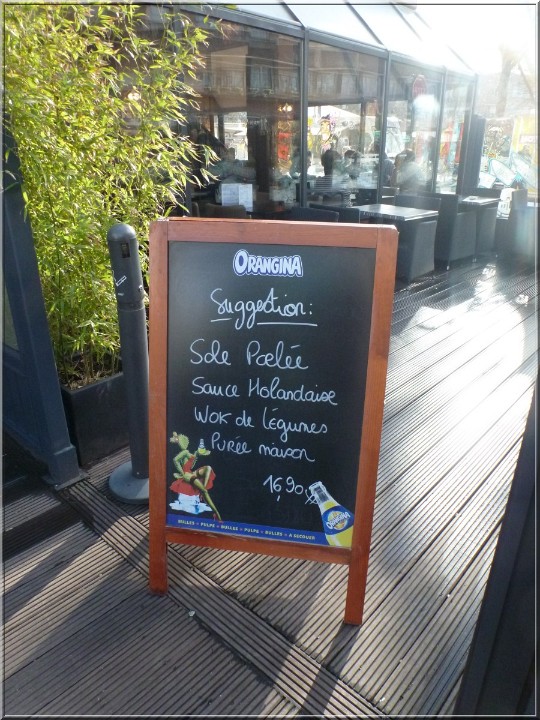 ORANGINA
Suggestion:
Sole Poelée
Sauce Holandaise
Wok de légumes
Purée maison
16,90
BULLES • PULPE • BULLES • PULPE • BULLES • A SECOUER
ORANGINA